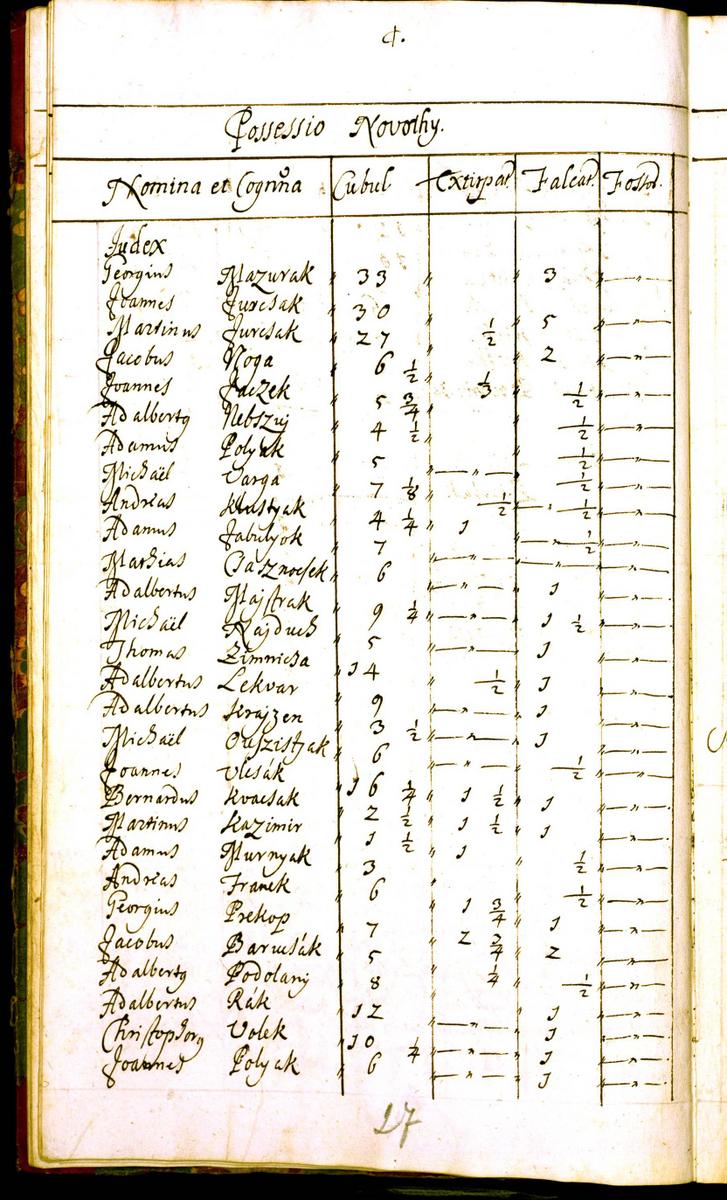 4.
Possessio Novothy.
Nomina et Cognoña Cubul Extirpat. Falcat. Fossor.
Judex
Georgius Mazurak " 33 " " 3 " — " —
Joannes Jurcsak " 30
Martinus Jurcsak " 27 1/2 " 5 " — " —
Jacobus Noga " 6 1/2 " " 2 " — " —
Joannes Jaczek " 5 3/4 " 1/3 " 1/2 " — " —
Adalbertg Nebszuj " 4 1/2 " " 1/2 " — " —
Adamus Polyak " 5 " " 1/2 " — " —
Michaël Varga " 7 1/8 " — " — " 1/2 " — " —
Andreas Klustyak " 4 1/4 " 1/2 " — " 1/2 " — " —
Adamus Jabulyok " 7 " 1 " — " — 1/2 " — " —
Mathias Chasznocsek " 6 " — " — " — " — " — " —
Adalbertus Majstrak " 9 1/4 " — " — " 1 " — " —
Michaël Najduch " 5 " — " — " 1 1/2 " — " —
Thomas Zimnicsa " 14 " — " — " 1 " — " —
Adalbertus Lekvar " 9 " 1/2 " 1 " — " —
Adalbertus Krajzen " 3 1/2 " — " — " 1 " — " —
Michaël " 6 " — " — " 1 " — " —
Joannes Vlcsák " 16 1/4 " — " — " 1/2 " — " —
Bernardus Kvacsak " 2 1/2 " 1 1/2 " 1 " — " —
Martinus Kazimir " 1 1/2 " 1 1/2 " 1 " — " —
Adamus Murnyak " 3 " 1 " 1/2 " — " —
Andreas Franek " 6 " " 1/2 " — " —
Georgius Prekop " 7 " 1 3/4 " 1 " — " —
Jacobus Barucsák " 5 " 2 3/4 " 2 " — " —
Adalbertg Podolany " 8 " 1/4 " 1/2 " — " —
Adalbertus Rák " 12 " — " — " 1 " — " —
Christophorg Volek " 10 1/4 " — " — " 1 " — " —
Joannes Polyak " 6 " — " — " 1 " — " —
27